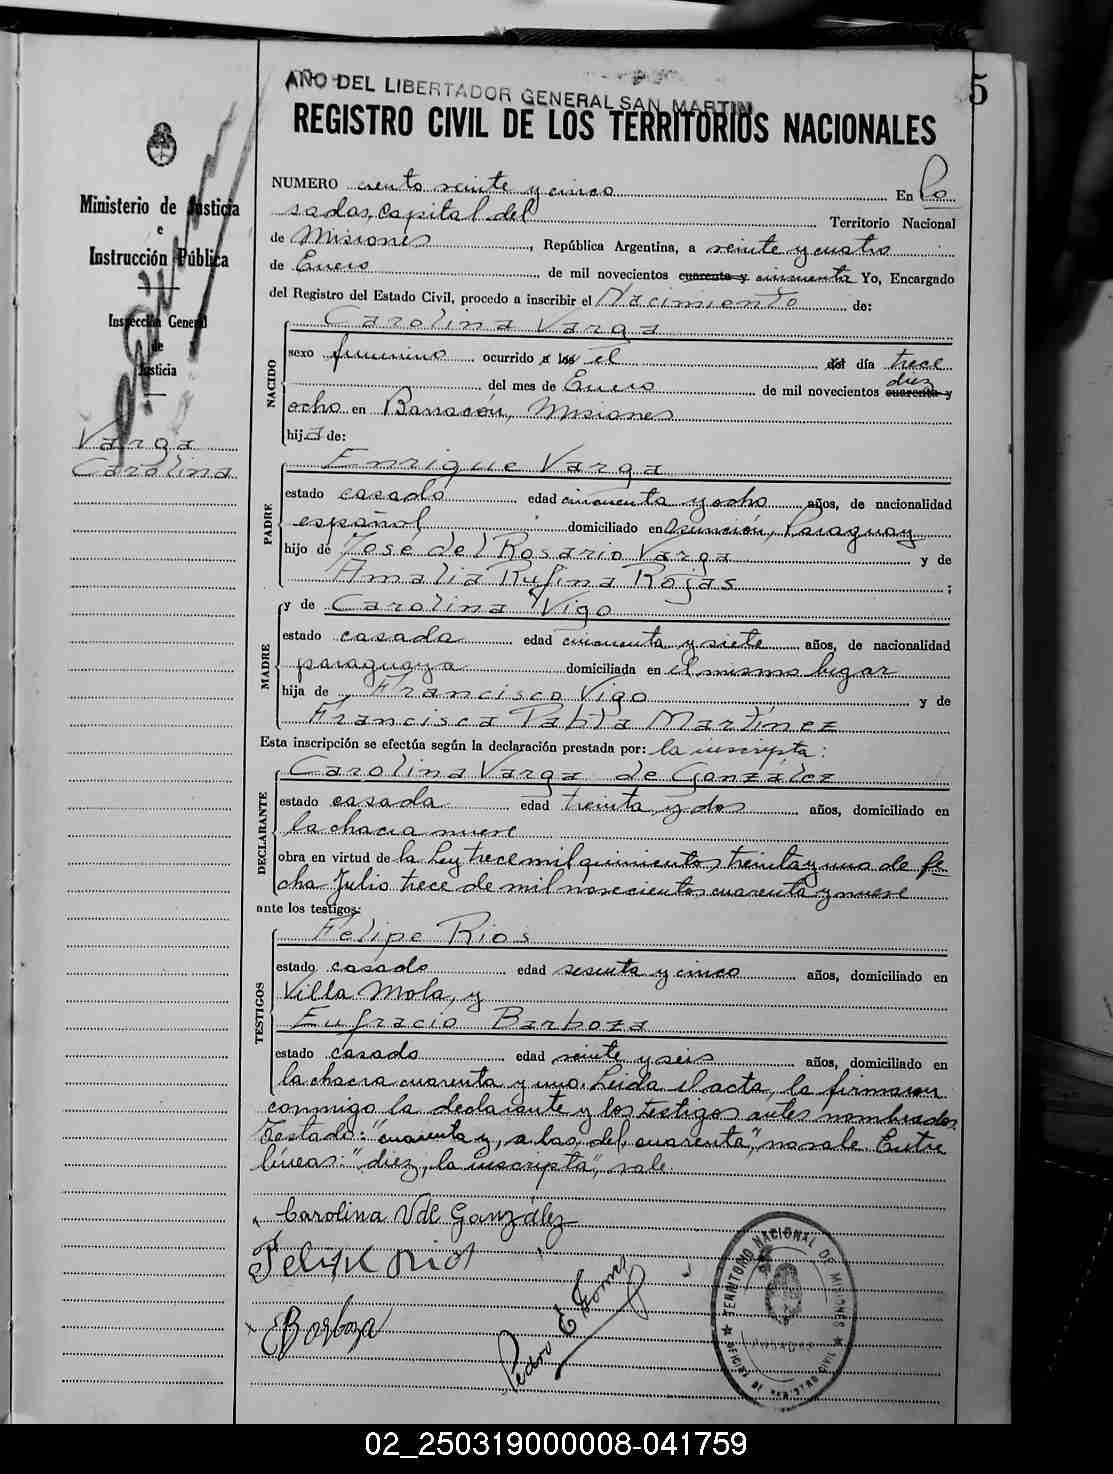 AÑO DEL LIBERTADOR GENERAL SAN MARTIN
5
REGISTRO CIVIL DE LOS TERRITORIOS NACIONALES
Ministerio de Justicia
e
Instrucción Pública
Inspección General
de
Justicia
Varga
Carolina
NUMERO ciento veinte y cinco En Po
sadas, Capital del Territorio Nacional
de Misiones, República Argentina, a veinte y cuatro
de Enero de mil novecientos cuarenta y cincuenta Yo, Encargado
del Registro del Estado Civil, procedo a inscribir el Nacimiento de:
NACIDO
Carolina Varga
sexo femenino ocurrido a las el del día trece
diez
del mes de Enero de mil novecientos cuarenta y
ocho en Barracón, Misiones
hija de:
PADRE
Enrique Varga
estado casado edad cincuenta y ocho años, de nacionalidad
español domiciliado en Asunción, Paraguay
hijo de José del Rosario Varga y de
Amalia Rufina Rojas ;
MADRE
y de Carolina Vigo
estado casada edad cincuenta y siete años, de nacionalidad
paraguaya domiciliada en el mismo lugar
hija de Francisco Vigo y de
Francisca Pabla Martínez
Esta inscripción se efectúa según la declaración prestada por: la inscripta:
DECLARANTE
Carolina Varga de González
estado casada edad treinta y dos años, domiciliado en
la chacra nueve
obra en virtud de la Ley trece mil quinientos treinta y uno de fe
cha Julio trece de mil novecientos cuarenta y nueve
ante los testigos:
TESTIGOS
Felipe Rios
estado casado edad sesenta y cinco años, domiciliado en
Villa Mola, y
Eufracio Barboza
estado casado edad veinte y seis años, domiciliado en
la chacra cuarenta y uno. Leida el acta, la firmaron
conmigo la declarante y los testigos antes nombrados
Testado: "cuarenta y, a las, del, cuarenta", no vale. Entre
líneas: "diez, la inscripta", vale.
Carolina V de González
Felipe Rios
EBarboza
Pedro E
TERRITORIO NACIONAL DE MISIONES
POSADAS
OFICINA DE REGISTRO CIVIL
02_250319000008-041759